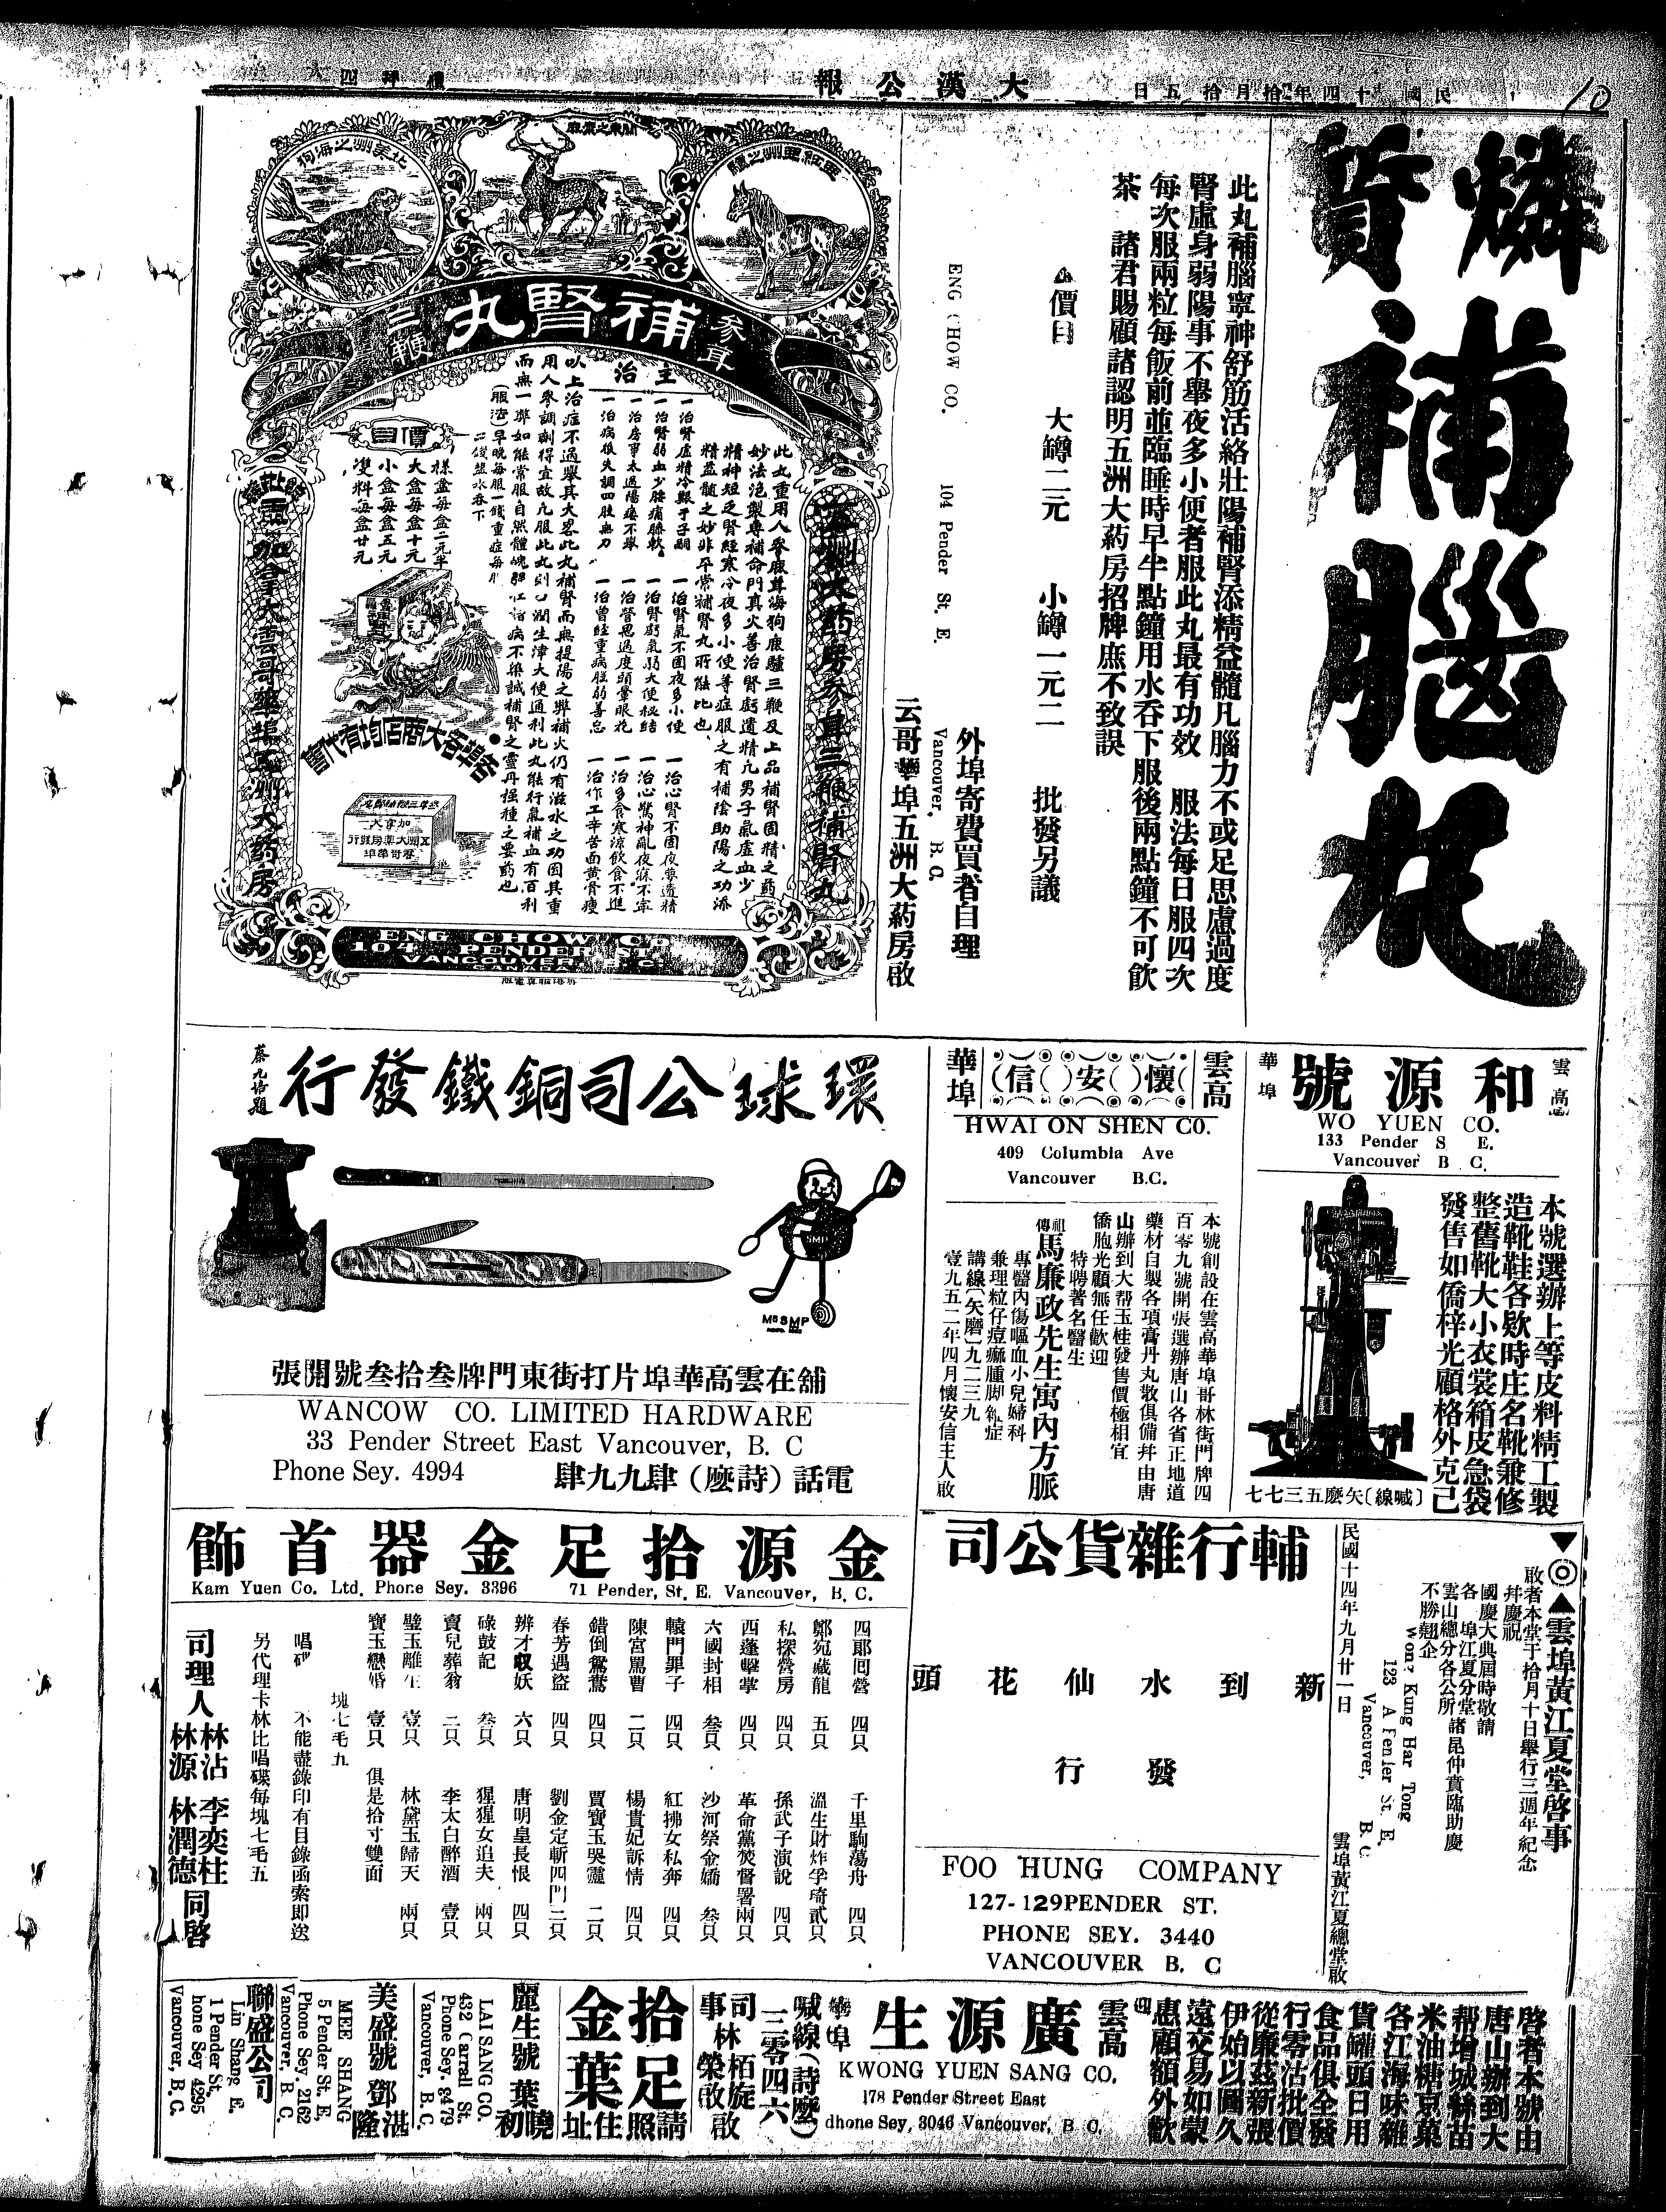 民國十四年拾月拾五日
大漢公報
禮拜四
10
燐質
補腦丸
此丸補腦寧神舒筋活絡壯陽補腎添精益髓凡腦力不或足思慮過度
腎虛身弱陽事不舉夜多小便者服此丸最有功效 服法每日服四次
每次服兩粒每飯前並臨睡時早半點鐘用水吞下服後兩點鐘不可飲
茶 諸君賜顧諸認明五洲大葯房招牌庶不致誤
價目 大罇二元 小罇一元二 批發另議
外埠寄費買者自理
ENG CHOW CO. 104 Pender St. E. Vancouver. B.C.
云哥華埠五洲大葯房啟
關東之鹿
北美洲之海狗
參茸
補腎丸
三鞭
主治
此丸重用人參鹿茸海狗鹿驢三鞭及上品補腎固精之葯
妙法泡製專補命門真火善治腎虧遺精凢男子氣虛血少
精神短乏腎經寒冷夜多小便等症服之有補陰助陽之功添
精益髓之妙非平常補腎丸所能比也
一治腎虛精冷艱于子嗣 一治腎氣不固夜多小便 一治心腎不固夜夢遺精
一治腎弱血少腰痛膝軟 一治腎虧氣弱大便秘結 一治心驚神亂夜寐不寧
一治房事太過陽痿不舉 一治營思過度頭暈眼花 一治多食寒涼飲食不進
一治病後失調四肢無力 一治曾經重病腿弱善忘 一治作工辛苦面黃骨瘦
以上治症不過舉其大畧此丸補腎而無提陽之弊補火仍有滋水之功因其重
用人參調劑得宜故凢服此丸則心潤生津大便通利此丸能行氣補血有百利
而無一弊如能常服自然體魄
病不染誠補腎之靈丹强種之要葯也
(服法)早晚每服一錢重症每
錢塩水吞下
價目
樣盒每盒二元半
大盒每盒十元
小盒每盒五元
雙料每盒廿元
各埠大商店均有代售
五洲大葯房參茸三鞭補腎丸
加拿大雲哥華埠五洲大葯房
ENG CHOW CO.
104 PENDER ST.
VANCOUVER, B.C.
CANADA
雲高華埠
和源號
WO YUEN CO.
133 Pender S E.
Vancouver B C.
本號選辦上等皮料精工製
造靴鞋各欵時庄名靴兼修
整舊靴大小衣裳箱皮急袋
發售如僑梓光顧格外克己
(喊線)矢麽五三七七
雲高華埠
懷安信
HWAI ON SHEN CO.
409 Columbia Ave
Vancouver B.C.
本號創設在雲高華埠哥林街門牌四
百零九號開張選辦唐山各省正地道
藥材自製各項膏丹丸散俱備并由唐
山辦到大帮玉桂發售價極相宜
僑胞光顧無任歡迎
特聘著名醫生
祖傳馬廉政先生寓內方脈
專醫內傷嘔血小兒婦科
兼理粒仔痘癲腫脚雜症
講線(矢磨)九二三九
壹九五二年四月懷安信主人啟
環球公司銅鐵發行
蔡九岱題
MRS SMP
舖在雲高華埠片打街東門牌叁拾叁號開張
WANCOW CO. LIMITED HARDWARE
33 Pender Street East Vancouver, B. C
Phone Sey. 4994
電話(詩麽)肆九九肆
▼◎▲雲埠黃江夏堂啓事
啟者本堂于拾月十日舉行三週年紀念
幷慶祝
國慶大典屆時敬請
各 埠江夏分堂
雲山總分各公所 諸昆仲賁臨助慶
不勝翹企
Wong Kung Har Tong
123 A Pender St. E.
Vancouver, B. C.
雲埠黃江夏總堂啟
民國十四年九月廿一日
輔行雜貨公司
新到水仙花頭
發行
FOO HUNG COMPANY
127-129 PENDER ST.
PHONE SEY. 3440
VANCOUVER B. C
金源拾足金器首飾
Kam Yuen Co. Ltd. Phone Sey. 3396 71 Pender, St. E. Vancouver, B. C.
四郎囘營 四只 千里駒蕩舟 四只
鄭宛藏龍 五只 溫生財炸孚琦 貳只
私探營房 四只 孫武子演說 四只
西蓬擊掌 四只 革命黨焚督署 兩只
六國封相 叁只 沙河祭金嬌 叁只
轅門罪子 四只 紅拂女私奔 四只
陳宮罵曹 二只 楊貴妃訴情 四只
錯倒鴛鴦 四只 賈寶玉哭靈 二只
春芳遇盜 四只 劉金定斬四門 三只
辨才収妖 六只 唐明皇長恨 四只
碌鼓記 叁只 猩猩女追夫 兩只
賣兒葬翁 二只 李太白醉酒 壹只
璧玉離生 壹只 林黛玉歸天 兩只
寶玉戀婚 壹只 俱是拾寸雙面
塊七毛五
唱碟 不能盡錄印有目錄函索即送
另代理卡林比唱碟每塊七毛五
司理人 林沾 李奕柱 林源 林潤德 同啓
啓者本號由
唐山辦到大
帮增城絲苗
米油糖京菓
各江海味雜
貨罐頭日用
食品俱全發
行零沽批價
從廉茲新張
伊始以圖久
遠交易如蒙
惠顧額外歡
迎
雲高華埠
廣源生
KWONG YUEN SANG CO.
178 Pender Street East
dhone Sey. 3046 Vancouver, B C.
喊線(詩麽)
三零四六
司事 林栢旋 林榮啟 啟
拾足金葉
請照住址
麗生號 葉曉初
LAI SANG CO.
432 Carrall St.
Phone Sey. 8479
Vancouver, B. C.
美盛號 鄧湛隆
MEE SHANG
5 Pender St. E,
Phone Sey. 2162
Vancouver, B. C.
聯盛公司
Lin Shang E.
1 Pender St.
hone Sey 4295
Vancouver, B. C.